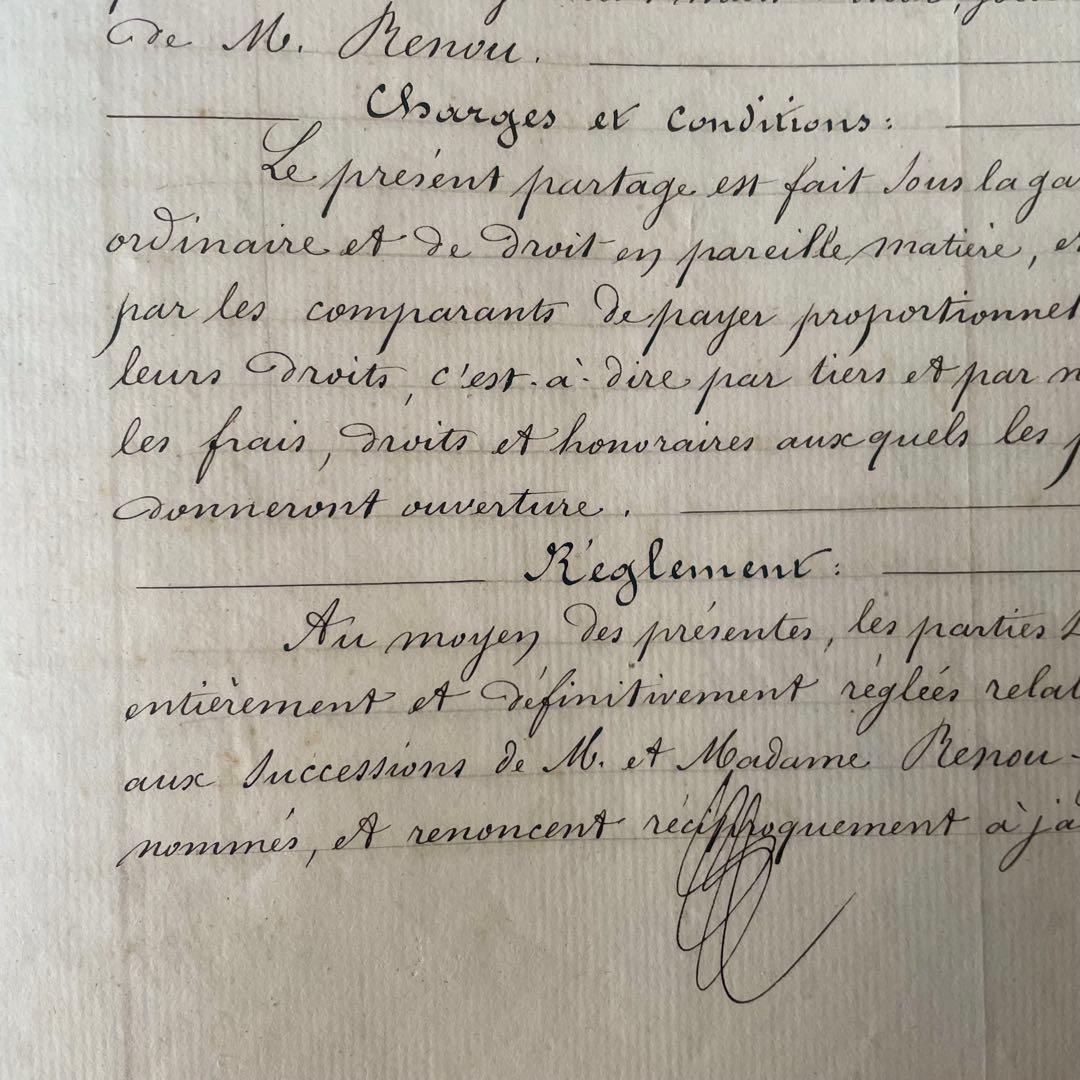 de M. Renou.
Charges et conditions:
Le présent partage est fait sous la ga
ordinaire et de droit en pareille matière, et
par les comparants de payer proportionnel
leurs droits, c'est-à-dire par tiers et par
les frais, droits et honoraires auxquels les
donneront ouverture.
Réglement:
Au moyen des présentes, les parties
entièrement et définitivement réglées relat
aux successions de M. et Madame Renou-
nommés, et renoncent réciproquement à ja